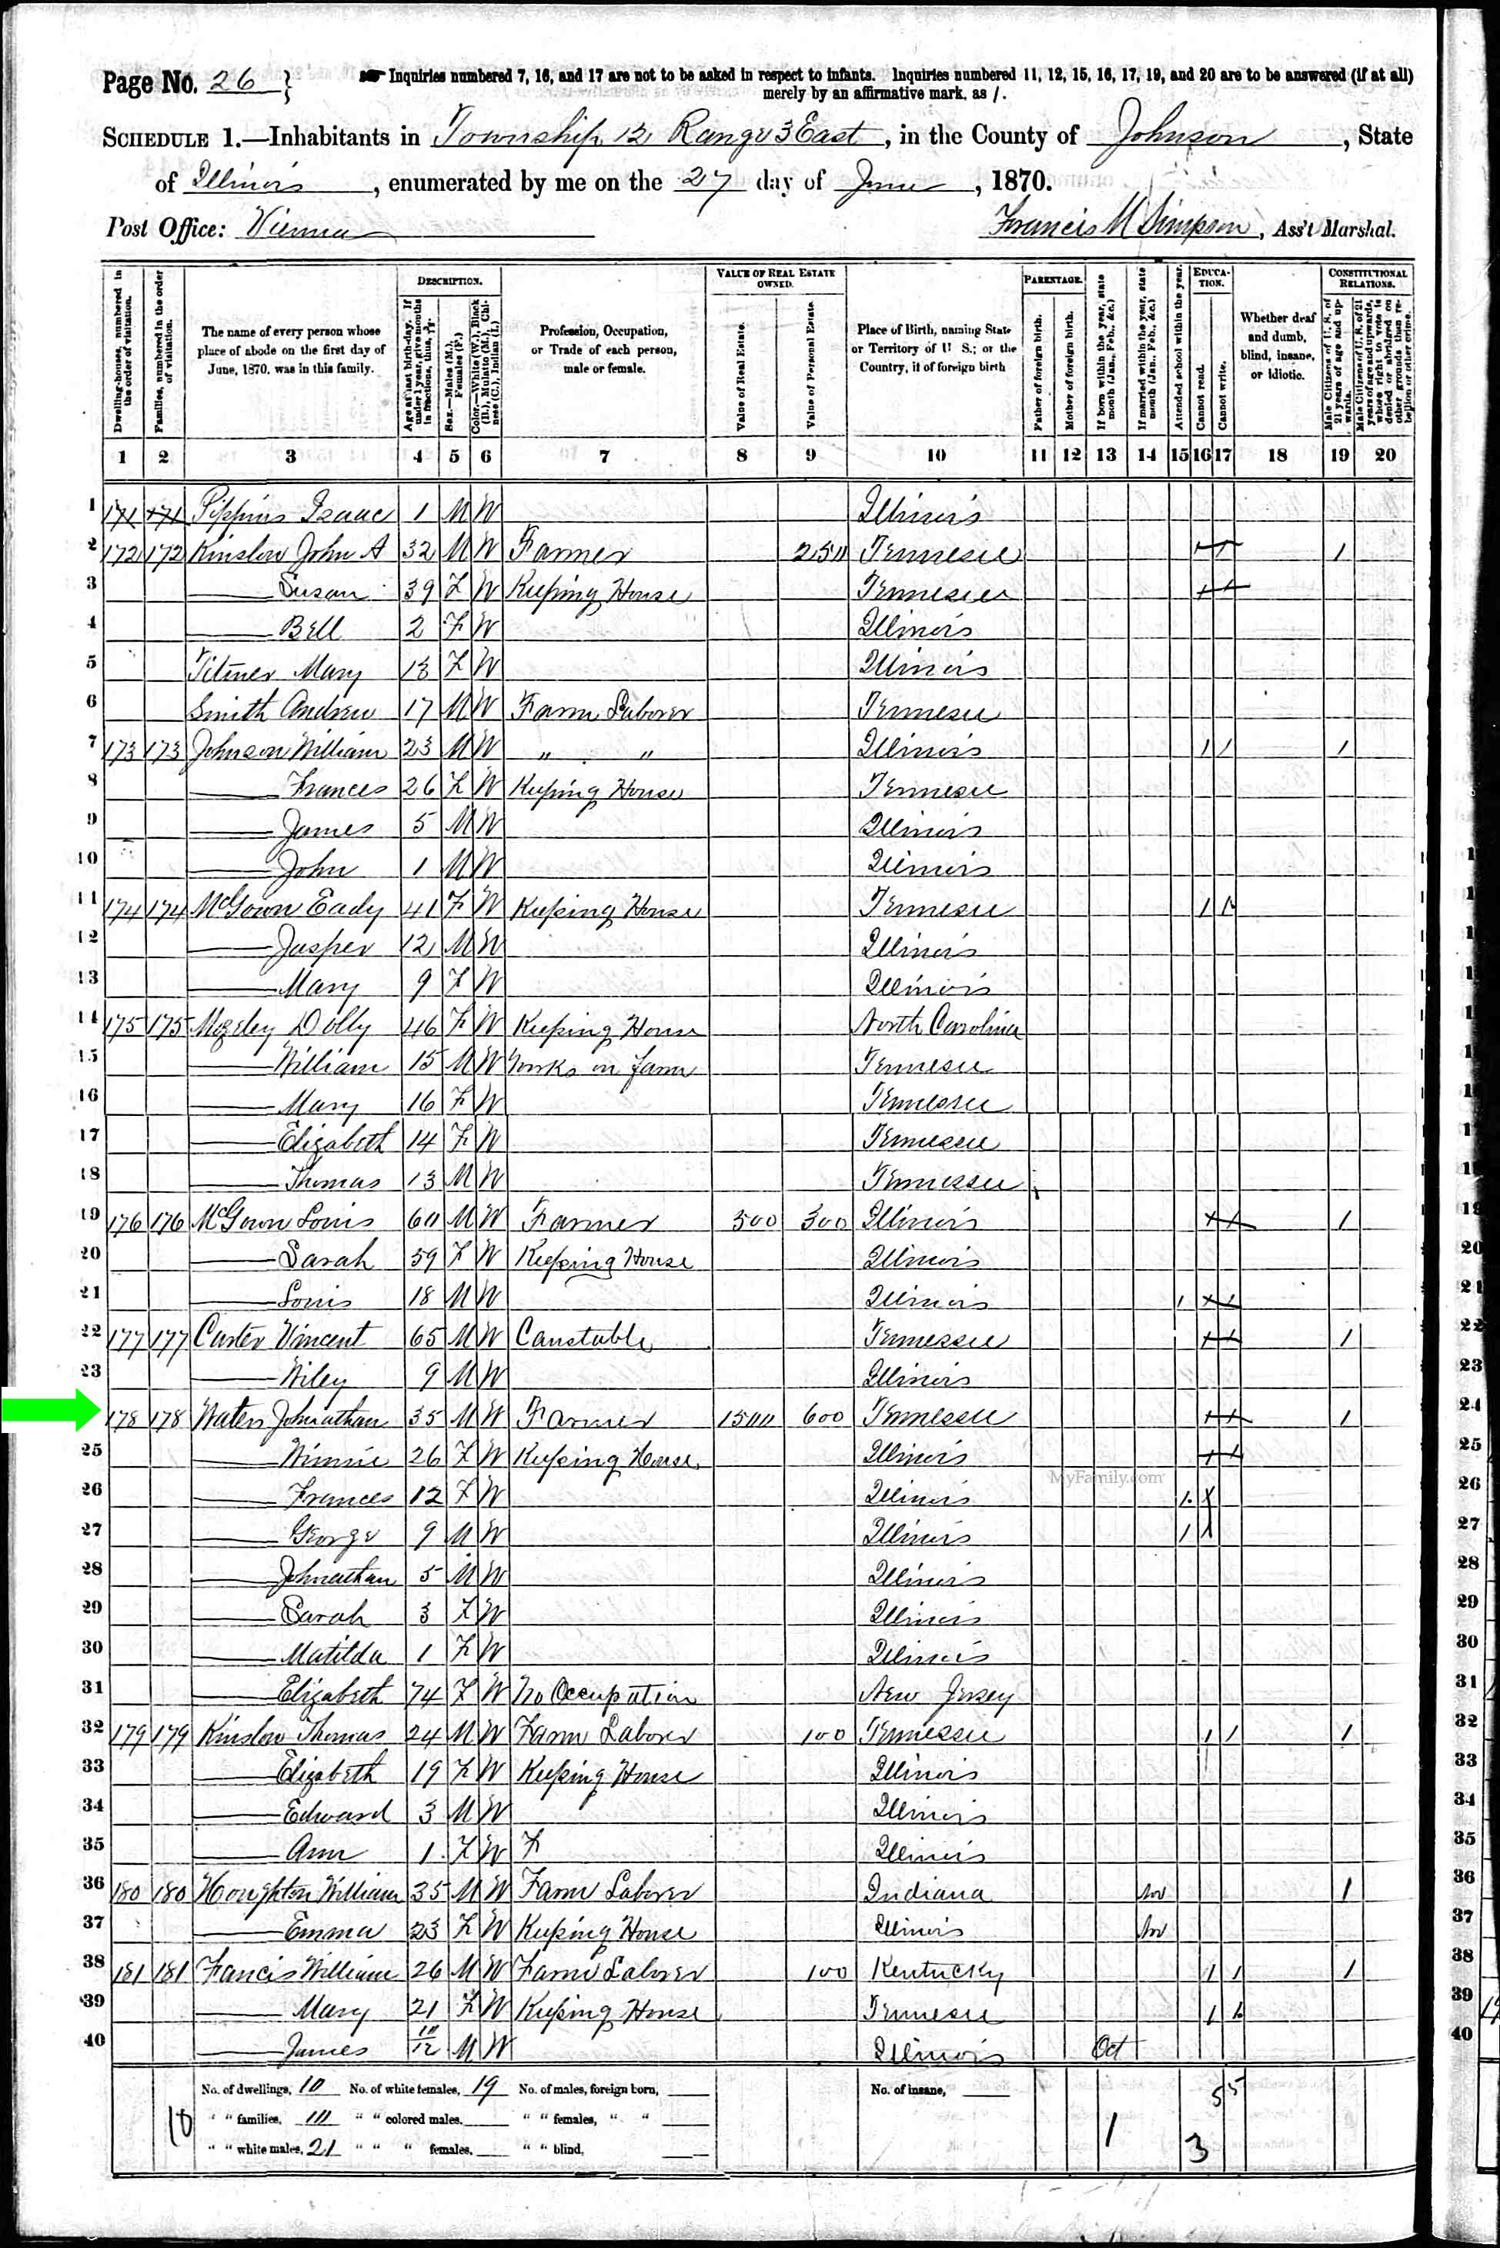 Page No. 26 }
Inquiries numbered 7, 16, and 17 are not to be asked in respect to infants. Inquiries numbered 11, 12, 15, 16, 17, 19, and 20 are to be answered (if at all)
merely by an affirmative mark, as /.
SCHEDULE 1.—Inhabitants in Township 12 Range 3 East, in the County of Johnson, State
of Illinois, enumerated by me on the 27 day of June, 1870.
Post Office: Vienna
Francis M Simpson, Ass't Marshal.
Dwelling-houses, numbered in the order of visitation.
Families, numbered in the order of visitation.
The name of every person whose place of abode on the first day of June, 1870, was in this family.
DESCRIPTION.
Age at last birth-day. If under 1 year, give months in fractions, thus,
Sex.—Males (M.), Females (F.)
Color.—White (W.), Black (B.), Mulatto (M.), Chinese (C.), Indian (I.)
Profession, Occupation, or Trade of each person, male or female.
VALUE OF REAL ESTATE OWNED.
Value of Real Estate.
Value of Personal Estate.
Place of Birth, naming State or Territory of U. S.; or the Country, if of foreign birth
PARENTAGE.
Father of foreign birth.
Mother of foreign birth.
If born within the year, state month (Jan., Feb., &c.)
If married within the year, state month (Jan., Feb., &c.)
Attended school within the year.
EDUCATION.
Cannot read.
Cannot write.
Whether deaf and dumb, blind, insane, or idiotic.
CONSTITUTIONAL RELATIONS.
Male Citizens of U. S. of 21 years of age and upwards.
Male Citizens of U. S. of 21 years of age and upwards, whose right to vote is denied or abridged on other grounds than rebellion or other crime.
1 2 3 4 5 6 7 8 9 10 11 12 13 14 15 16 17 18 19 20
1 171 171 Pippins Isaac 1 M W Illinois
2 172 172 Kinslow John A 32 M W Farmer 250 Tennessee 1
3 —— Susan 39 F W Keeping House Tennessee
4 —— Bell 2 F W Illinois
5 Mary 13 F W Illinois
6 Smith Andrew 17 M W Farm Laborer Tennessee
7 173 173 Johnson William 23 M W " " Illinois 1 1 1
8 —— Frances 26 F W Keeping House Tennessee
9 —— James 5 M W Illinois
10 —— John 1 M W Illinois
11 174 174 McGown Eady 41 F W Keeping House Tennessee 1 1
12 —— Jasper 12 M W Illinois
13 —— Mary 9 F W Illinois
14 175 175 Dolly 46 F W Keeping House North Carolina
15 —— William 15 M W Works on farm Tennessee
16 —— Mary 16 F W Tennessee
17 —— Elizabeth 14 F W Tennessee
18 —— Thomas 13 M W Tennessee
19 176 176 McGown Louis 60 M W Farmer 500 300 Illinois 1
20 —— Sarah 59 F W Keeping House Illinois
21 —— Louis 18 M W Illinois 1
22 177 177 Carter Vincent 65 M W Constable Tennessee 1
23 —— Wiley 9 M W Illinois
24 178 178 Waters Johnathan 35 M W Farmer 1500 600 Tennessee 1
25 —— Winnie 26 F W Keeping House Illinois
26 —— Frances 12 F W Illinois 1
27 —— George 9 M W Illinois 1
28 —— Johnathan 5 M W Illinois
29 —— Sarah 3 F W Illinois
30 —— Matilda 1 F W Illinois
31 —— Elizabeth 74 F W No Occupation New Jersey
32 179 179 Kinslow Thomas 24 M W Farm Laborer 100 Tennessee 1 1 1
33 —— Elizabeth 19 F W Keeping House Illinois
34 —— Edward 3 M W Illinois
35 —— Ann 1 F W F Illinois
36 180 180 Houghton William 35 M W Farm Laborer Indiana Nov 1
37 —— Emma 23 F W Keeping House Illinois Nov
38 181 181 Francis William 26 M W Farm Laborer 100 Kentucky 1 1 1
39 —— Mary 21 F W Keeping House Tennessee 1 1
40 —— James 10/12 M W Illinois Oct
MyFamily.com
No. of dwellings, 10 No. of white females, 19 No. of males, foreign born, No. of insane, 5 5
10 " " families, 10 " " colored males, " " females, " " 1
" " white males, 21 " " " females, " " blind, 3